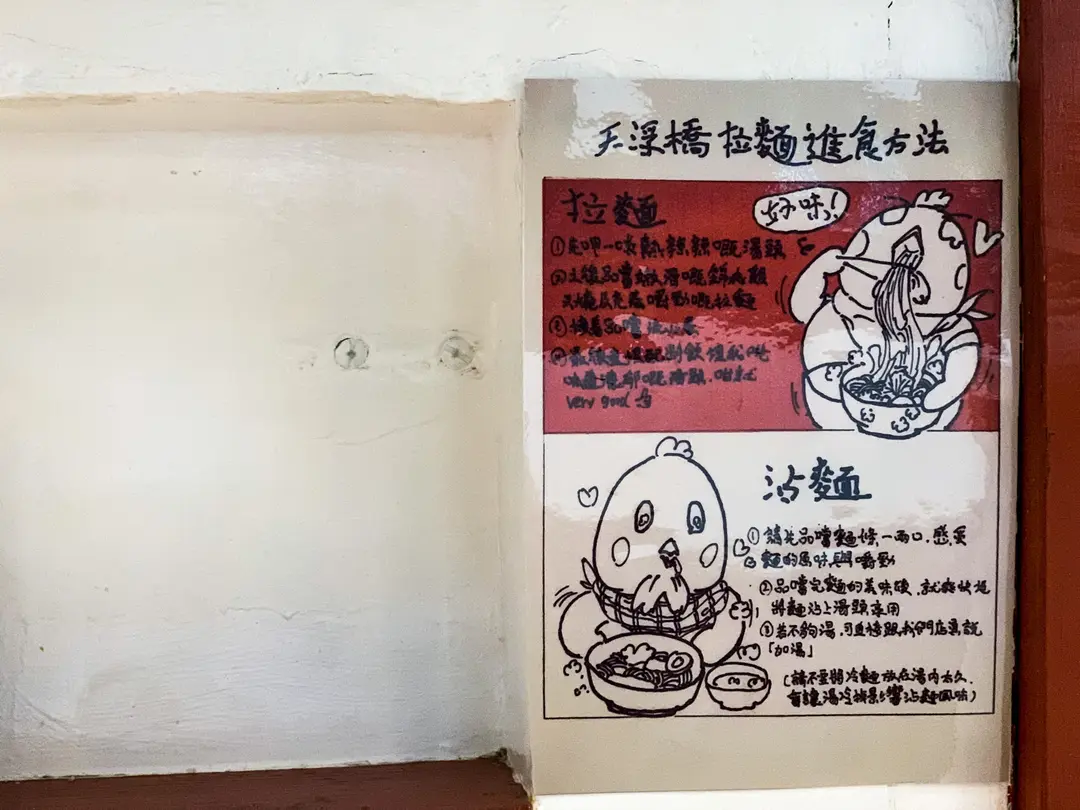 天深橋拉麵進食方法
拉麵
好味!
①先呷一啖熱辣辣嘅湯頭
②之後品嚐嫩滑嘅
嚼勁嘅拉麵
③接着品嚐
④最後
湯頭，咁就
very good
沾麵
①請先品嚐麵條一兩口，感受
麵的風味與嚼勁
②品嚐完麵的美味後，就爽快地
將麵沾上湯頭享用
③若不夠湯，可直接跟我們店員說
「加湯」
(請不要將冷麵放在湯內太久，
會讓湯冷掉影響沾麵風味)